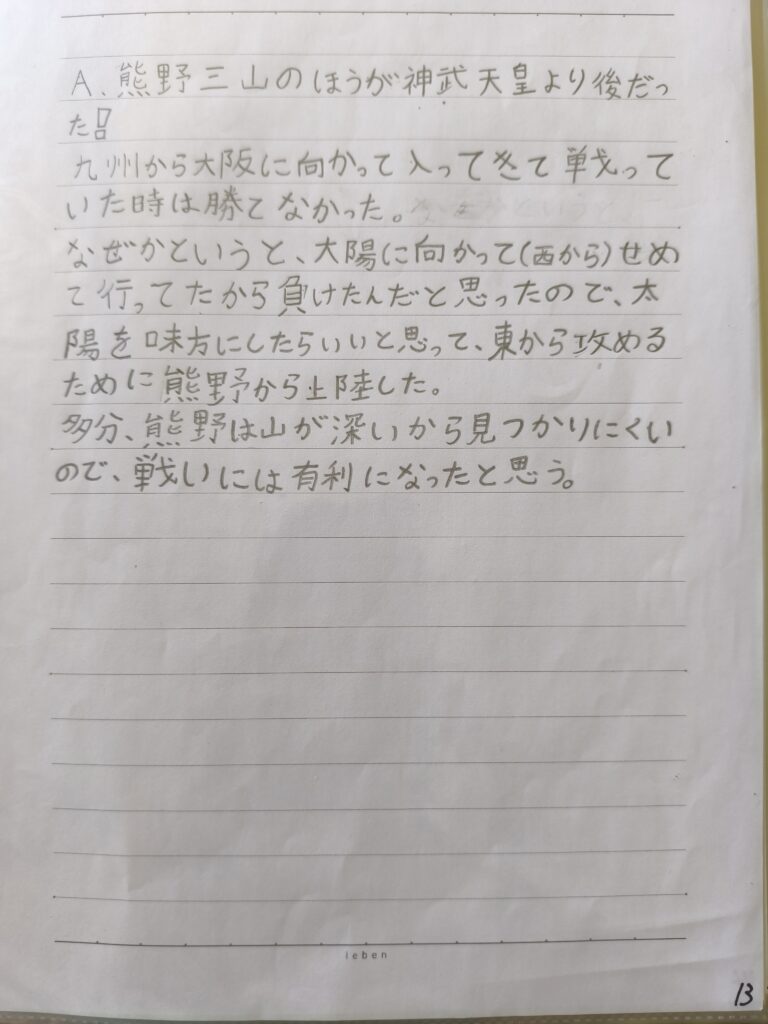 A、熊野三山のほうが神武天皇より後だっ
た!!
九州から大阪に向かって入ってきて戦って
いた時は勝てなかった。
なぜかというと、大陽に向かって(西から)せめ
て行ってたから負けたんだと思ったので、太
陽を味方にしたらいいと思って、東から攻める
ために熊野から上陸した。
多分、熊野は山が深いから見つかりにくい
ので、戦いには有利になったと思う。
leben
13